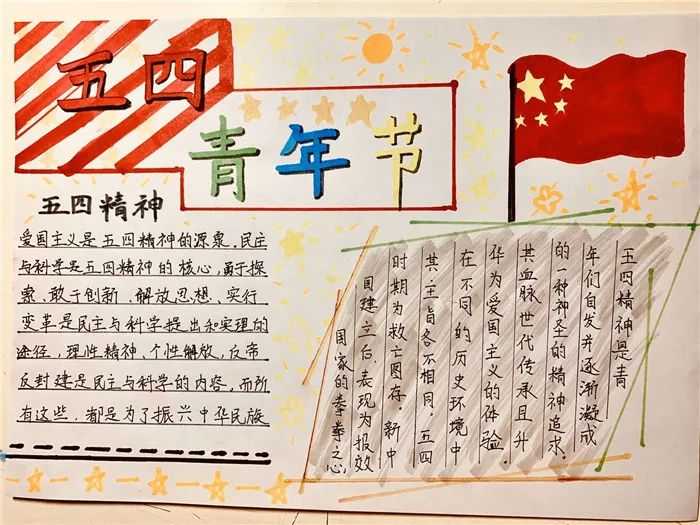 五四
青年节
五四精神
爱国主义是五四精神的源泉.民主
与科学是五四精神的核心,勇于探
索、敢于创新、解放思想、实行
变革是民主与科学提出和实现的
途径,理性精神,个性解放,反帝
反封建是民主与科学的内容.而所
有这些,都是为了振兴中华民族
五四精神是青
年们自发并逐渐凝成
的一种神圣的精神追求。
其血脉世代传承且升
华为爱国主义的体验.
在不同的历史环境中
其主旨各不相同.五四
时期为救亡图存.新中
国建立后,表现为报效
国家的拳拳之心.